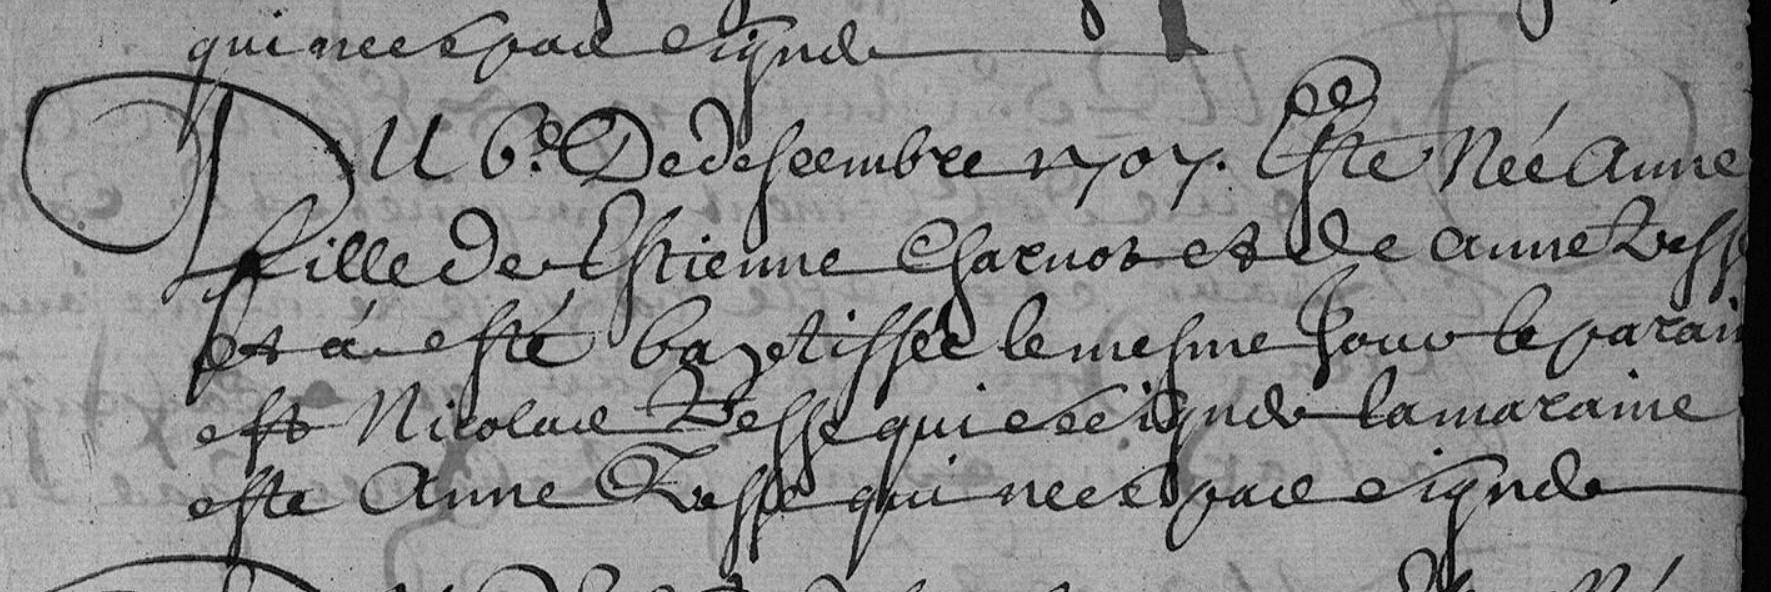 qui ne c pas signé
DU 6e De desembre 1707. Este Née anne
fille de Estienne Charnot et de anne Vess
et á esté baptissée le mesme Jour le parain
est Nicolas Vesse qui c est signé la maraine
este Anne Vesse qui ne c pas signé